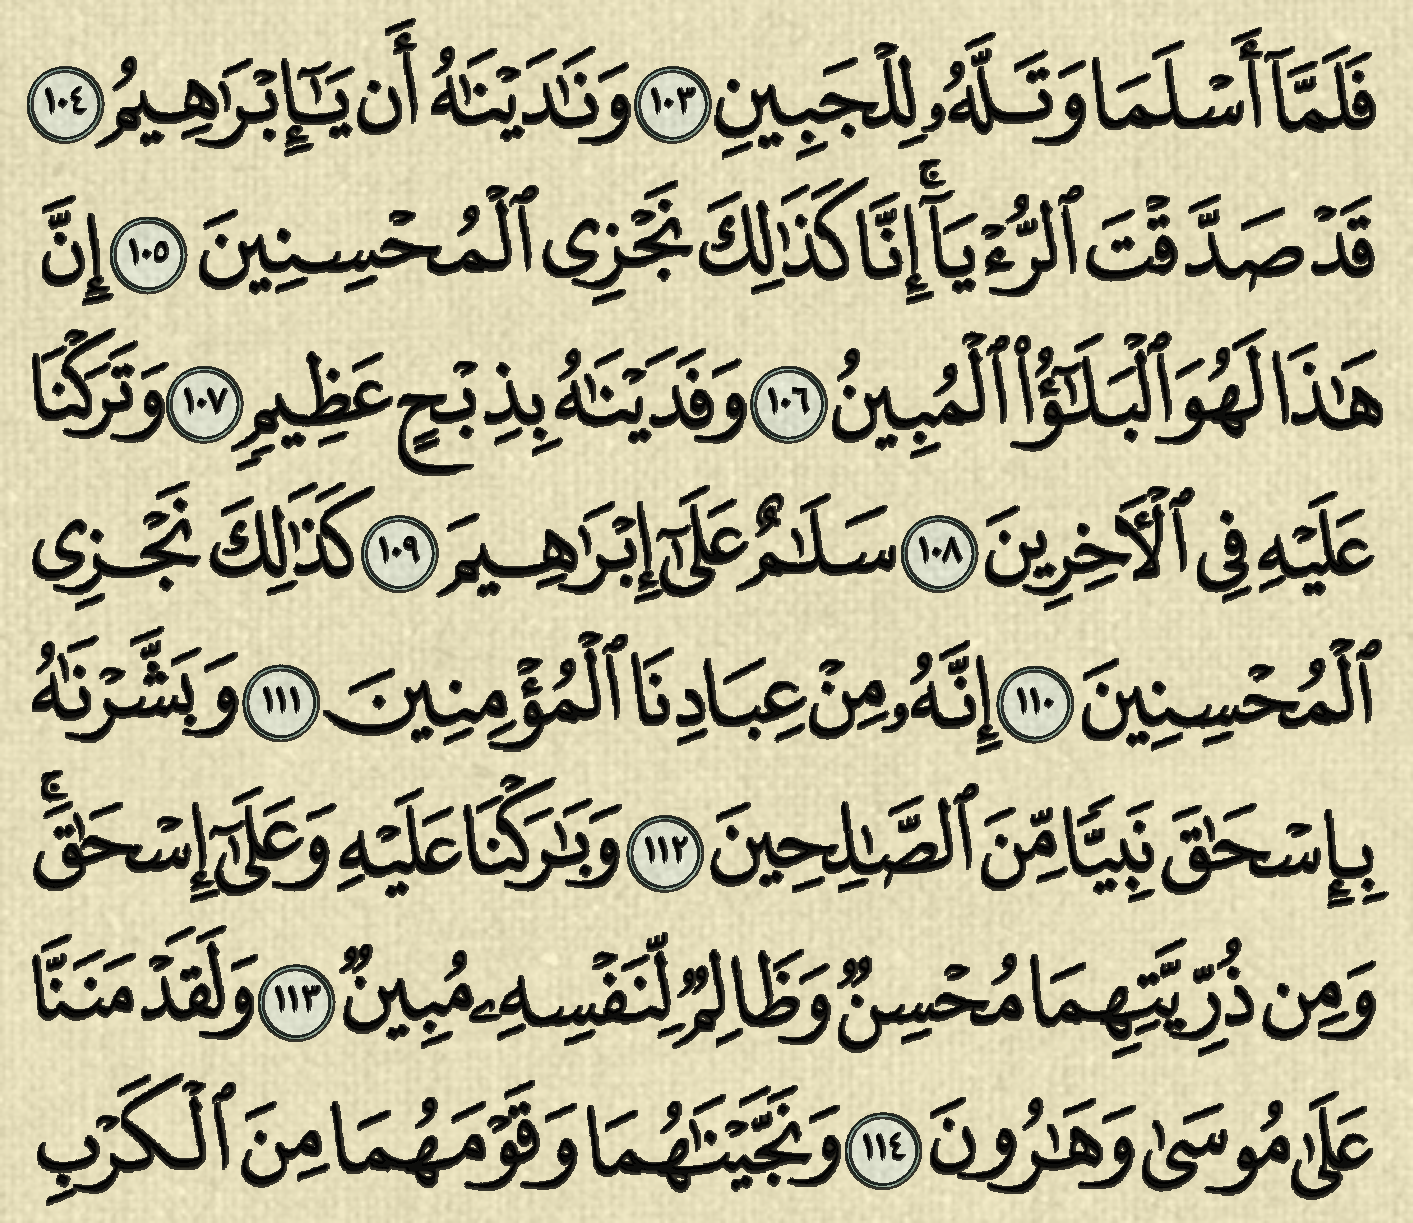 فَلَمَّآ أَسْلَمَا وَتَلَّهُۥ لِلْجَبِينِ ١٠٣ وَنَٰدَيْنَٰهُ أَن يَـٰٓإِبْرَٰهِيمُ ١٠٤
قَدْ صَدَّقْتَ ٱلرُّءْيَآ ۚ إِنَّا كَذَٰلِكَ نَجْزِى ٱلْمُحْسِنِينَ ١٠٥ إِنَّ
هَـٰذَا لَهُوَ ٱلْبَلَـٰٓؤُا۟ ٱلْمُبِينُ ١٠٦ وَفَدَيْنَـٰهُ بِذِبْحٍ عَظِيمٍ ١٠٧ وَتَرَكْنَا
عَلَيْهِ فِى ٱلْـَٔاخِرِينَ ١٠٨ سَلَـٰمٌ عَلَىٰٓ إِبْرَٰهِيمَ ١٠٩ كَذَٰلِكَ نَجْزِى
ٱلْمُحْسِنِينَ ١١٠ إِنَّهُۥ مِنْ عِبَادِنَا ٱلْمُؤْمِنِينَ ١١١ وَبَشَّرْنَـٰهُ
بِإِسْحَـٰقَ نَبِيًّا مِّنَ ٱلصَّـٰلِحِينَ ١١٢ وَبَـٰرَكْنَا عَلَيْهِ وَعَلَىٰٓ إِسْحَـٰقَ ۚ
وَمِن ذُرِّيَّتِهِمَا مُحْسِنٌ وَظَالِمٌ لِّنَفْسِهِۦ مُبِينٌ ١١٣ وَلَقَدْ مَنَنَّا
عَلَىٰ مُوسَىٰ وَهَـٰرُونَ ١١٤ وَنَجَّيْنَـٰهُمَا وَقَوْمَهُمَا مِنَ ٱلْكَرْبِ